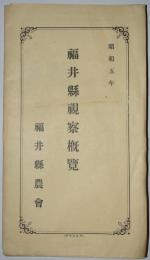 昭和五年
福井縣視察概覽
福井縣農會